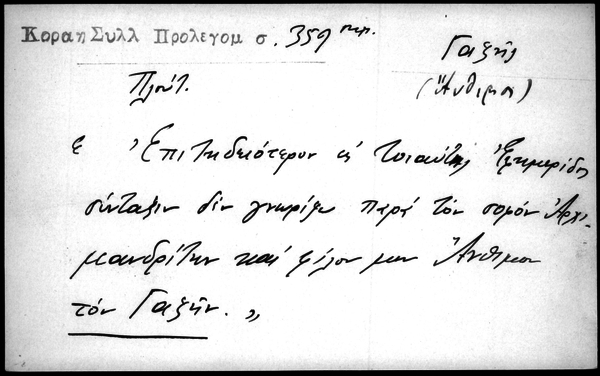 Κοραη Συλλ Προλεγομ σ. 359
Γαζῆς
Πλούτ. (Ἄνθιμος)
« Ἐπιτηδειότερον εἰς τοιαύτης Ἐφημερίδος
σύνταξιν δὲν γνωρίζω παρὰ τὸν σοφὸν Ἀρχι-
μανδρίτην καὶ φίλον μου Ἄνθιμον
τὸν Γαζῆν. »